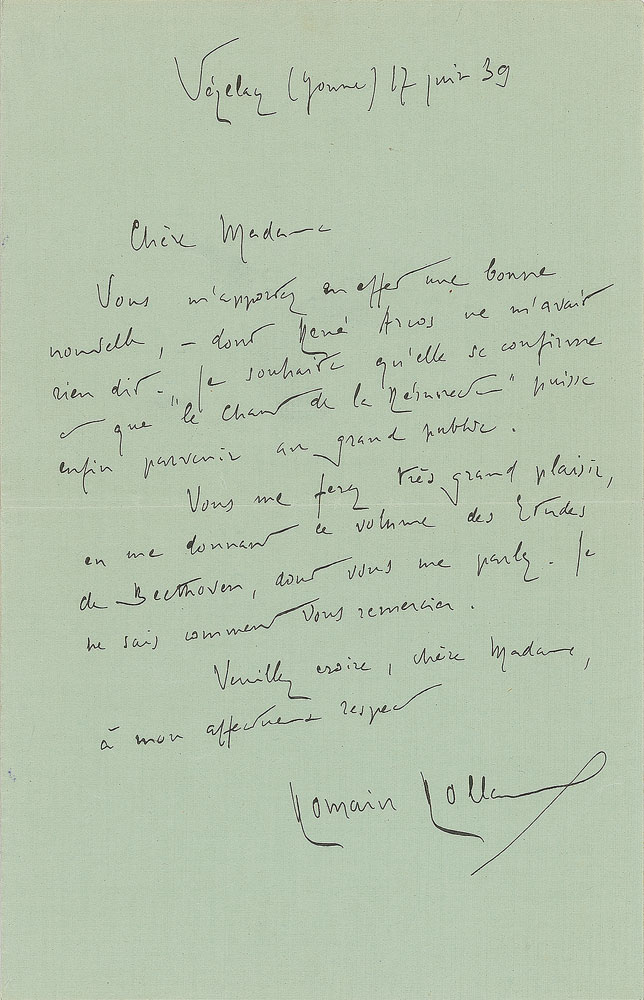 Vézelay (Yonne) 17 juin 39
Chère Madame
Vous m'apportez en effet une bonne
nouvelle, – dont René Arcos ne m'avait
rien dit – Je souhaite qu'elle se confirme
et que "le Chant de la Résurrection" puisse
enfin parvenir au grand public.
Vous me ferez très grand plaisir,
en me donnant ce volume des Etudes
de Beethoven, dont vous me parlez. Je
ne sais comment vous remercier.
Veuillez croire, chère Madame,
à mon affectueux respect
Romain Rolland